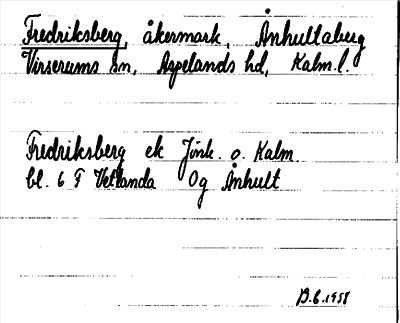 Fredriksberg, åkermark, Ånhultaberg
Virserums sn, Aspelands hd, Kalm. l.
Fredriksberg ek Jönk. o. Kalm
bl. 6 F Vetlanda Og Ånhult
B.C. 1958